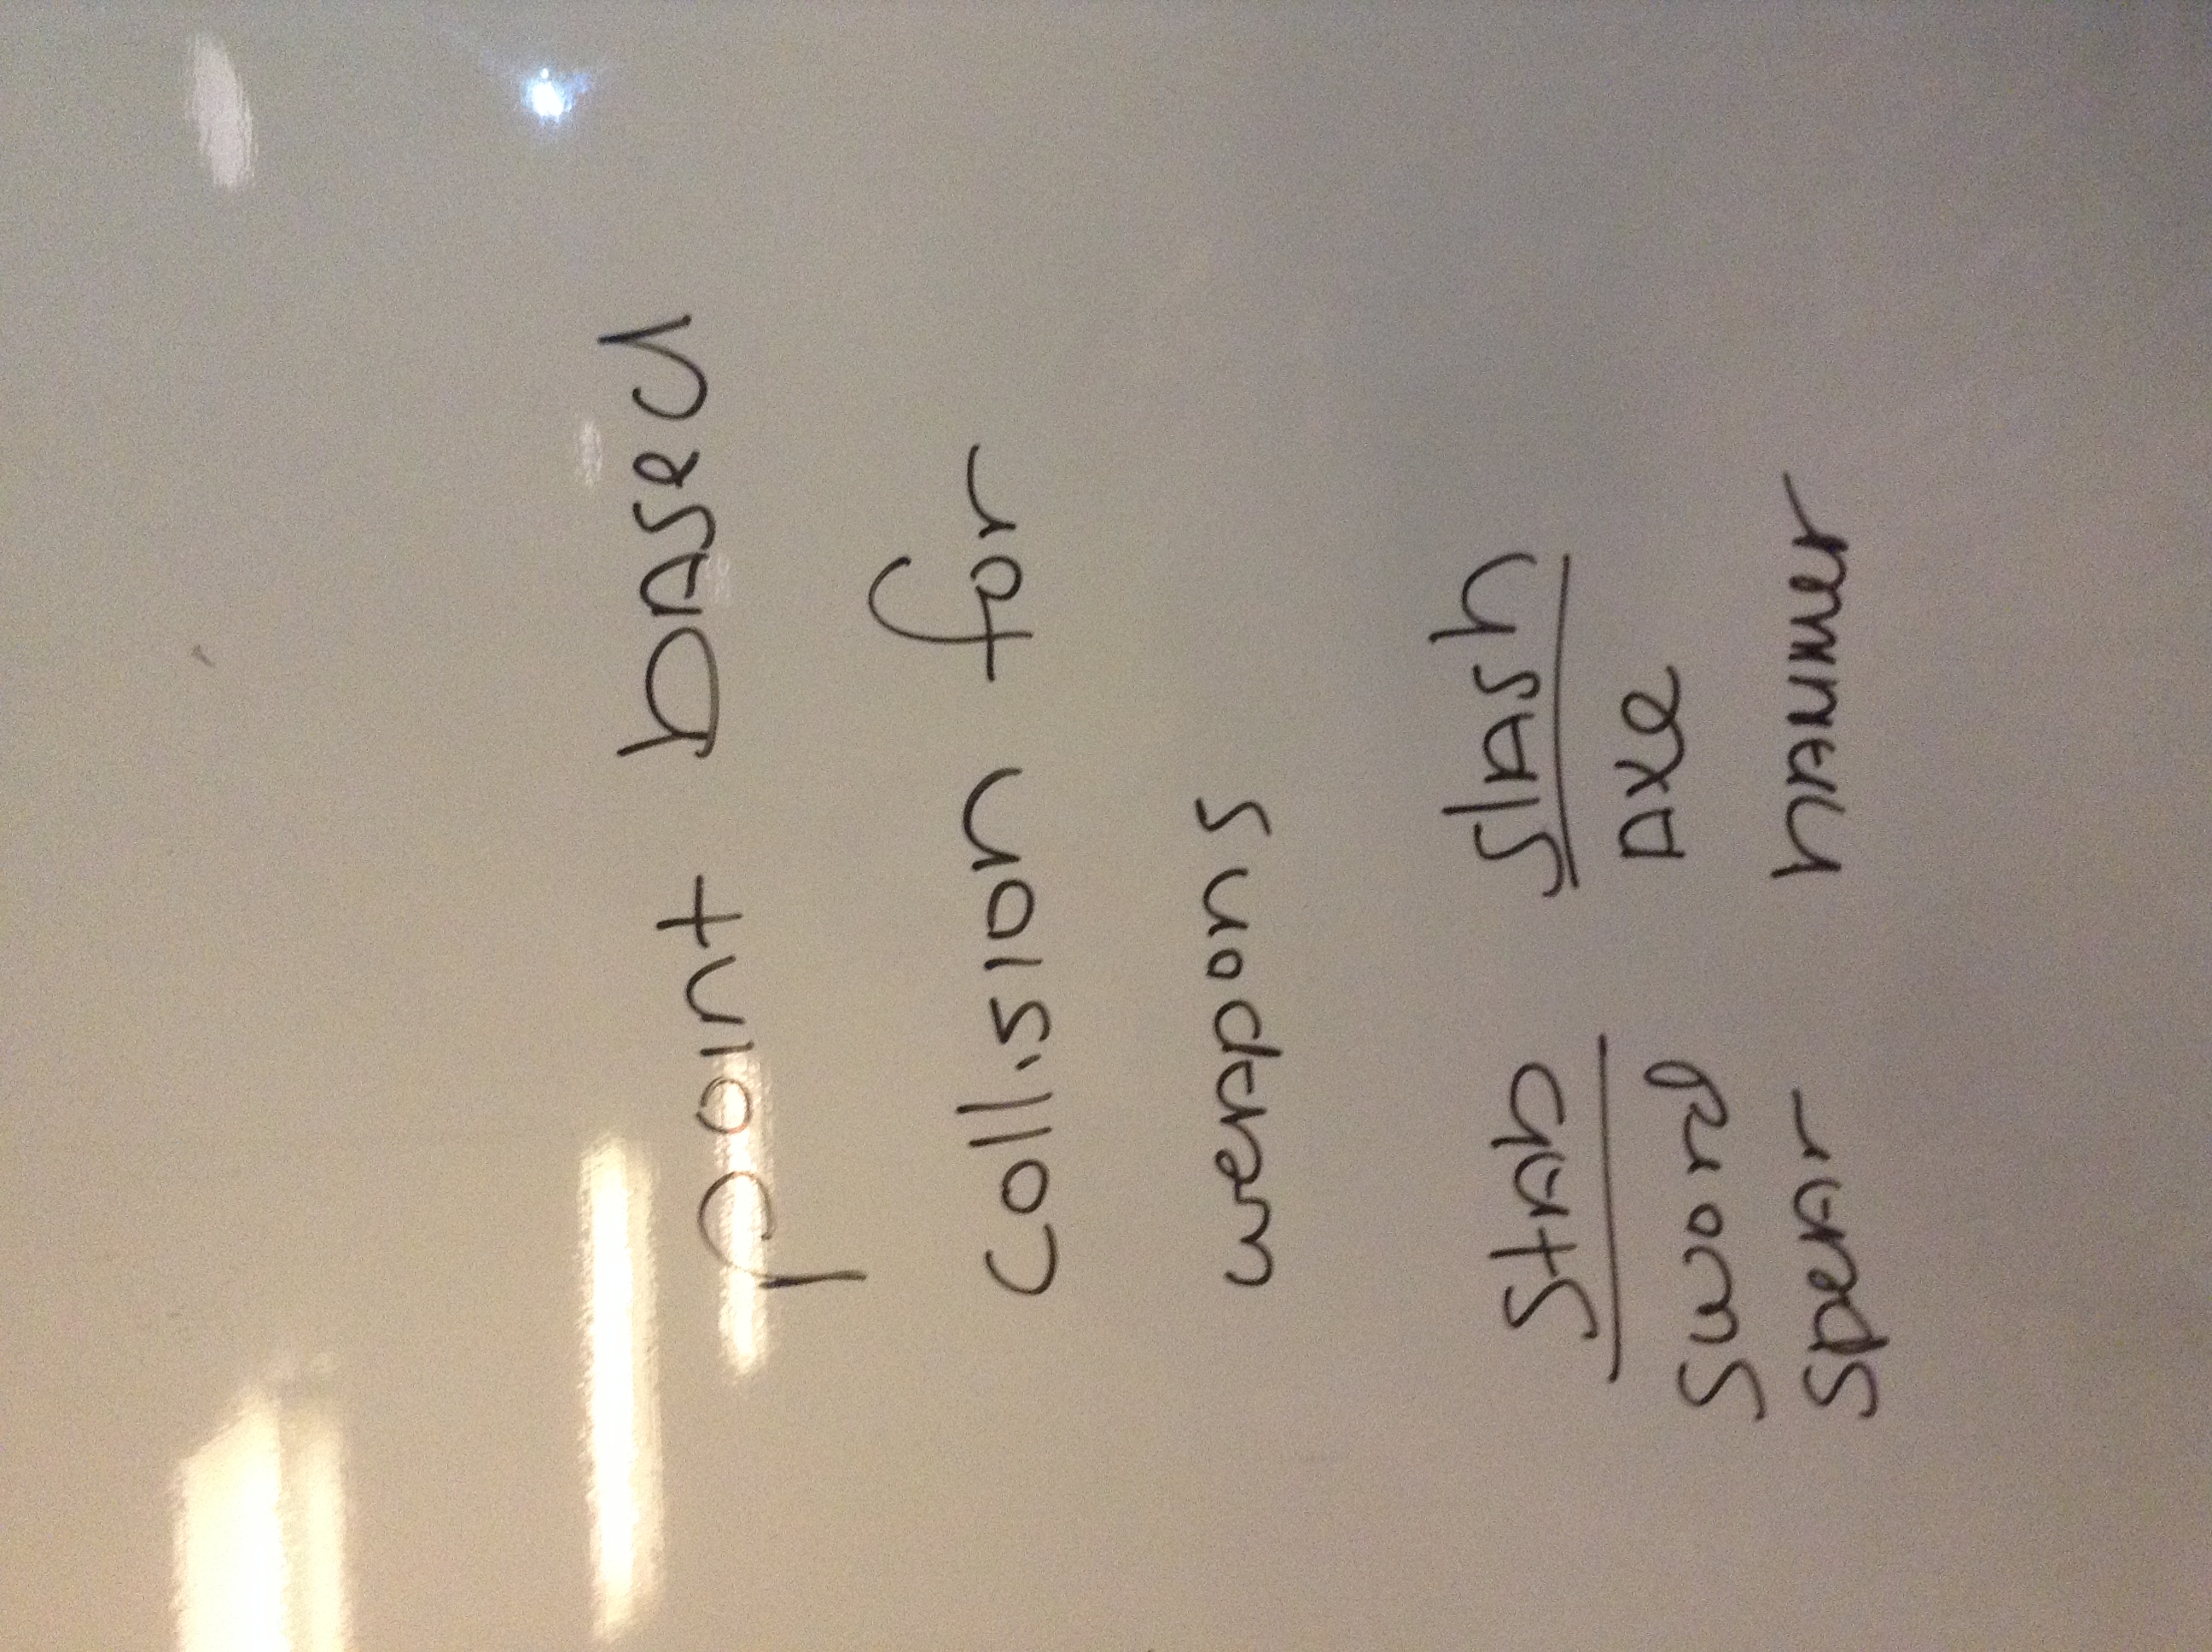 point based
collision for
weapons
stab slash
sword axe
spear hammer